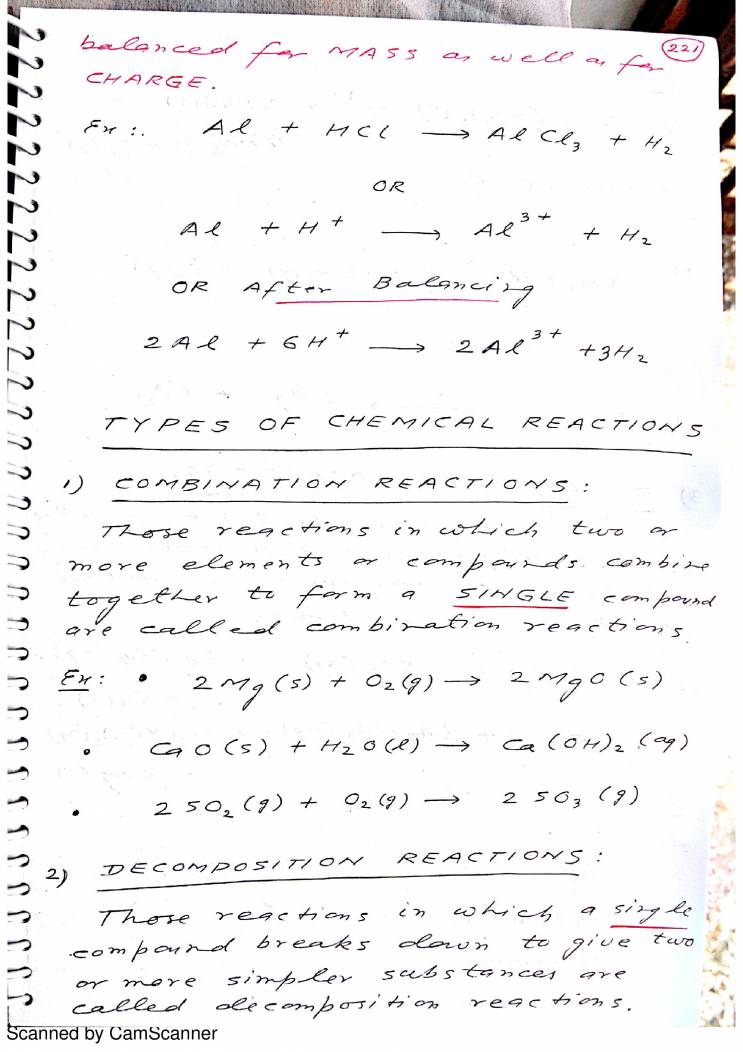 221
balanced for MASS as well as for
CHARGE.
Ex :. Al + HCl → AlCl₃ + H₂
OR
Al + H⁺ → Al³⁺ + H₂
OR After Balancing
2Al + 6H⁺ → 2Al³⁺ +3H₂
TYPES OF CHEMICAL REACTIONS
1) COMBINATION REACTIONS :
Those reactions in which two or
more elements or compounds combine
together to form a SINGLE compound
are called combination reactions.
Ex : • 2Mg(s) + O₂(g) → 2MgO(s)
• CaO(s) + H₂O(l) → Ca(OH)₂(aq)
• 2SO₂(g) + O₂(g) → 2SO₃(g)
2) DECOMPOSITION REACTIONS :
Those reactions in which a single
compound breaks down to give two
or more simpler substances are
called decomposition reactions.
Scanned by CamScanner